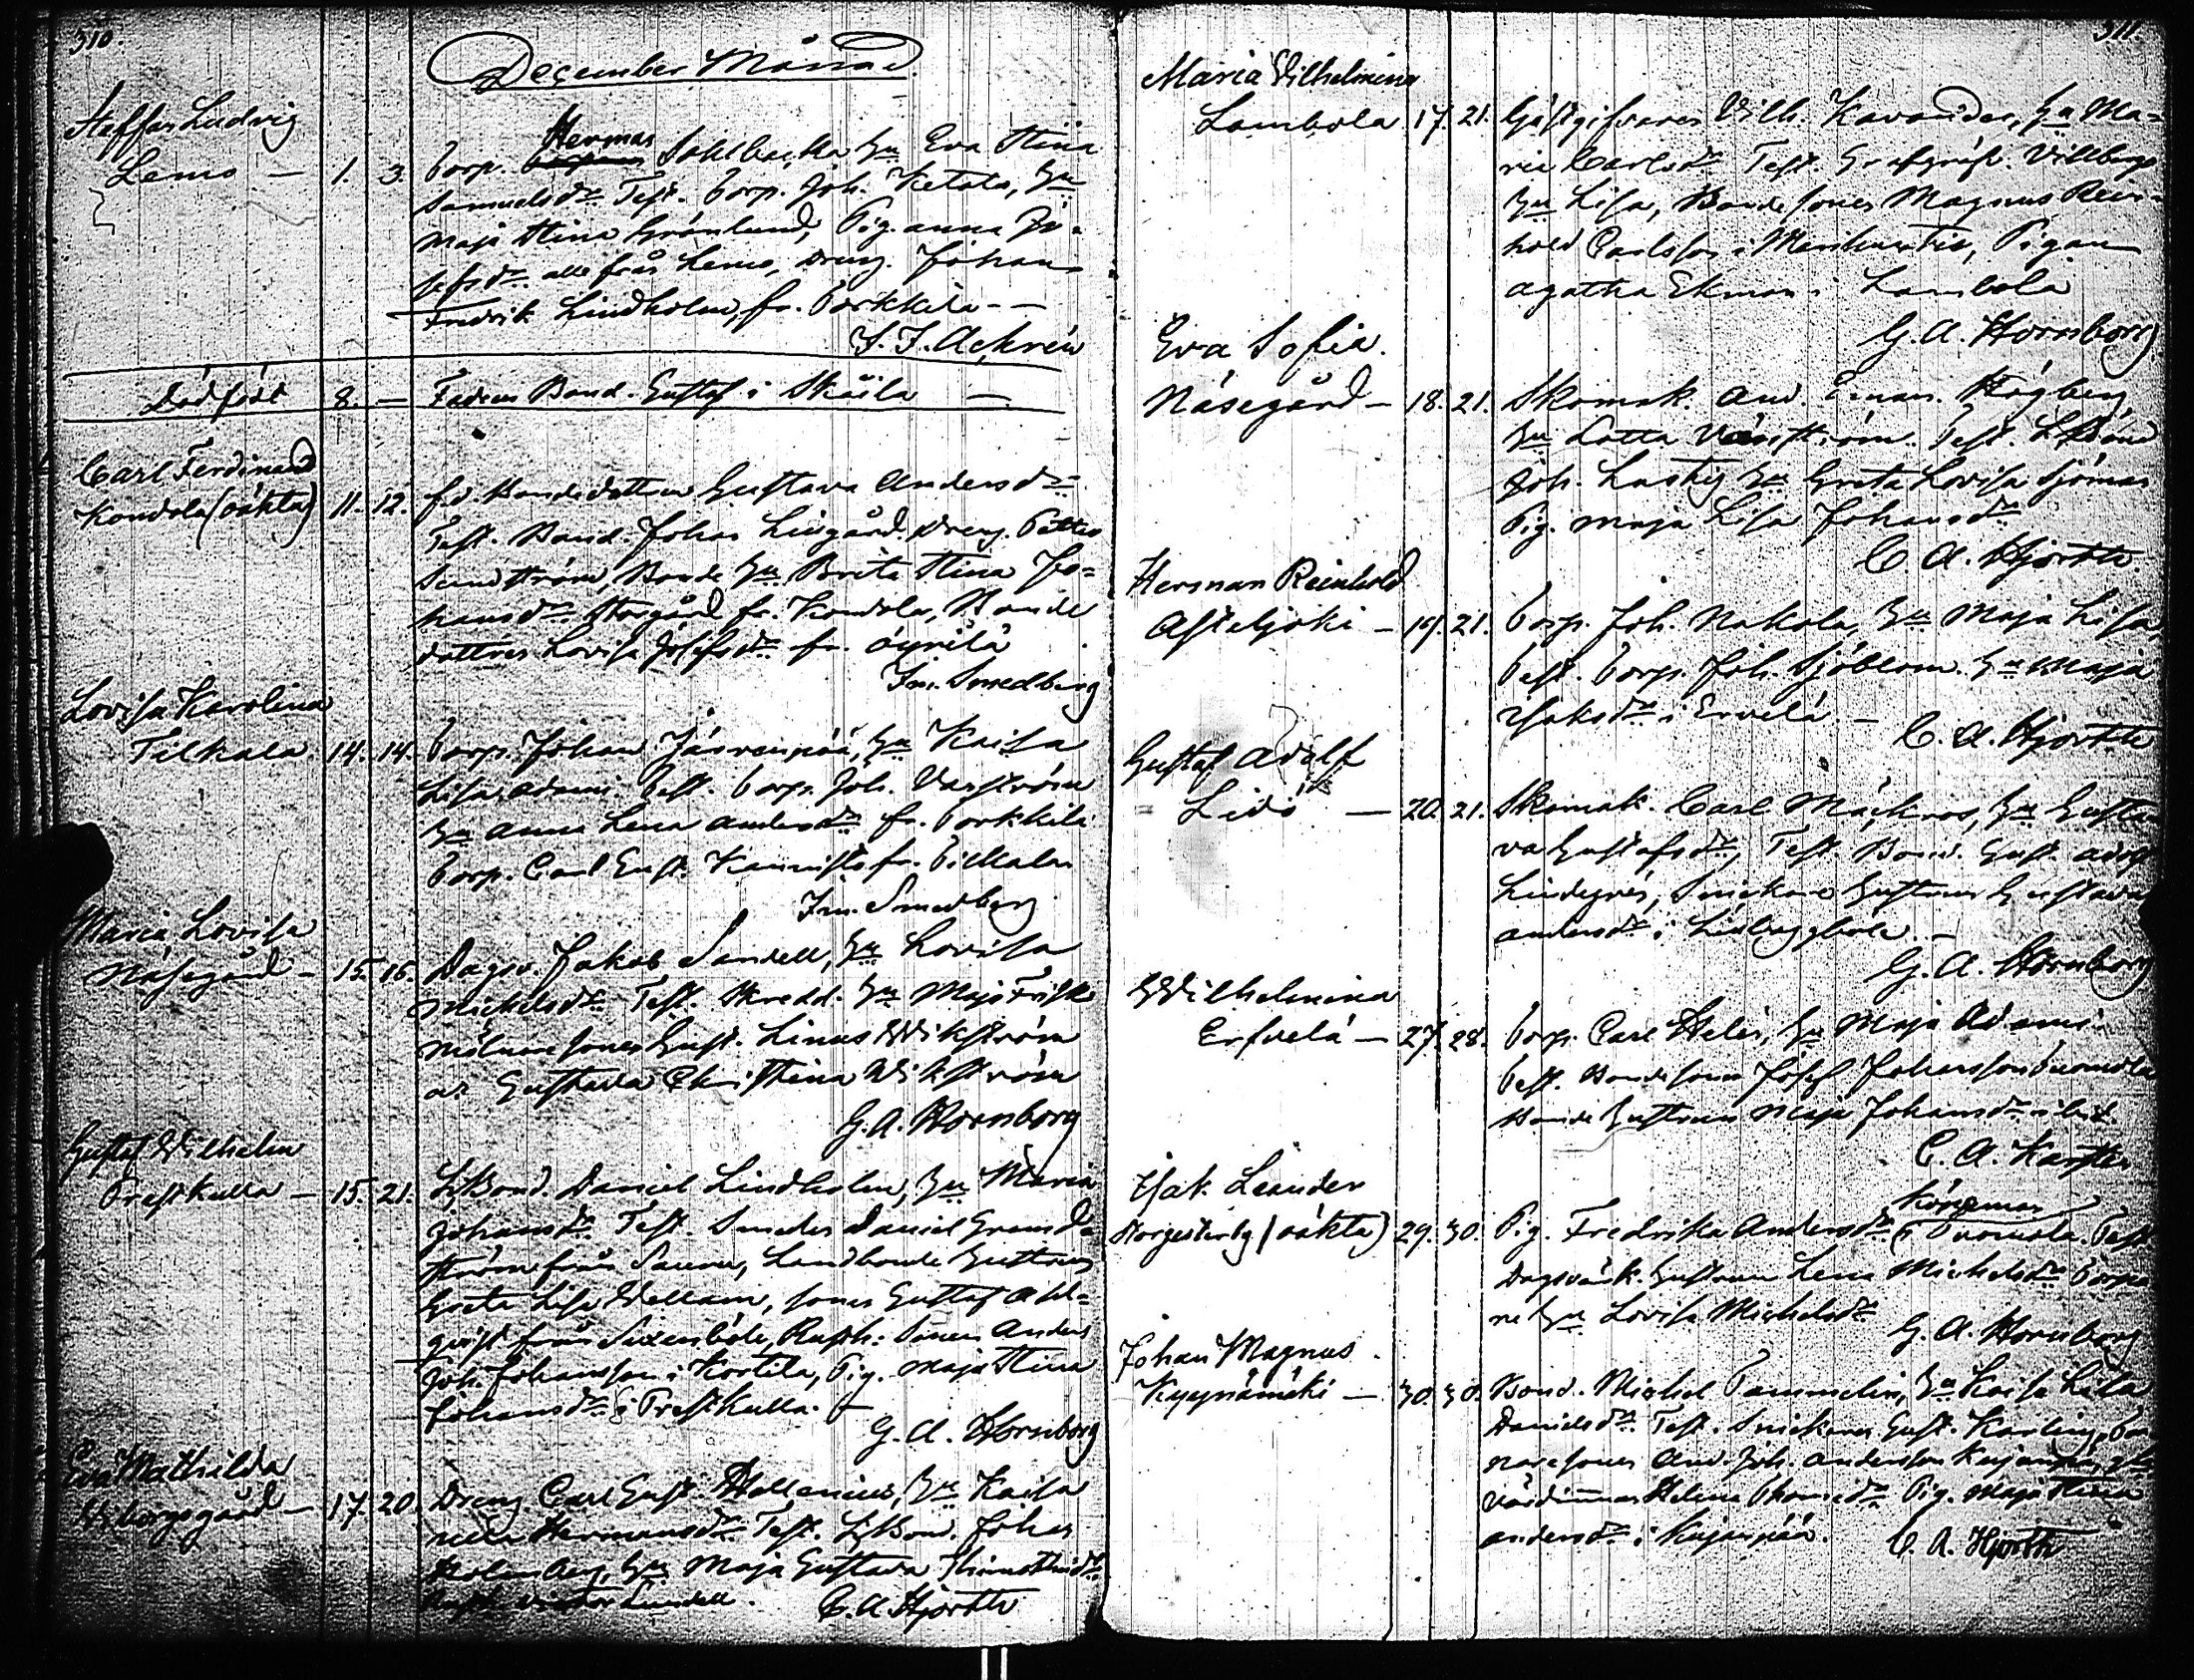 310.
December Månad.
Staffan Ludvig
Lemo — 1. 3. Torp. Herman Sahlbacka Hu Eva Stina
Samuelsdr Test. Torp. Joh. Ketala, Hu
Maja Stina Grönlund, Pig. Anna Jo-
sefsdr alle från Lemo, Dreng. Johan
Fredrik Lindholm, fr. Torkkila —
J. F. Achrén
Dödfödt 8. — Fadren Bond. Gustaf i Skäila —
Carl Ferdinand
Kondola (oäkta) 11. 12. fd. Bondedottren Gustava Andersdr
Test. Bond. Johan Lillgård. Dreng. Petter
Sundström, Bonde Hu Brita Stina Jo=
hansdr Storgård fr. Kondola, Bonde
dottren Lovisa Josefsdr fr.
Im. Smedberg
Lovisa Karolina
Tilkala. 14. 14. Torp. Johan Järvenpää, Hu Kaisa
Lisa Adami Test. Torp. Joh. Varström
Hu Anna Lena Andersdr fr. Torkkila
Torp. Carl Gust. Kannisto fr. Tilkala
Im. Smedberg
Maria Lovisa
Näsegård — 15. 16. Dagsv. Jakob Sandell, Hu Lovisa
Michelsdr Test. Skredd. Hu Maja Frisk
Mölnaresonen Gust. Linus Wikström
o. Gustava Christina Wikström
G. A. Hornborg
Gustaf Wilhelm
Prestkulla — 15. 21. LBond. Daniel Lindholm, Hu Maria
Johansdr Test. Smeden Daniel Grund=
ström från Sauru, Landbonde hustrun
Greta Lisa Wellam, sonen Gustaf Ahl=
qvist från Svenböle, Rusth: Sonen Anders
Joh. Johansson i Kortila, Pig. Maja Stina
Johansdr i Prestkulla. —
G. A. Hornborg
Eva Mathilda
17. 20. Dreng Carl Gust. Hellenius, Hu Kaisa
Hermansdr Test. LBond. Johan
Holmberg, Hu Maja Gustava
Lindell. C. A. Hjorth
311.
Maria Vilhelmina
Lambola 17. 21. Gästgifvaren Vilh. Kavander, Hu Ma=
ria Carlsdr Test. Villberg
Hu Lisa, Bondesonen Magnus Rein=
hold Carlsson i, Pigan
Agatha Ekman i Lambola
G. A. Hornborg
Eva Sofia.
Näsegård — 18. 21. Skomak. And. Eman. Högberg
Hu Lotta Test. LBond
Joh. Lustig Hu Greta Lovisa Sjöman
Pig. Maja Lisa Johansdr
C. A. Hjorth
Herman Reinhold
Asteljoki — 19. 21. Torp. Joh. Nakola, Hu Maja Lisa,
Test. Torp. Joh. Sjöblom. Hu Maja
Isaksdr i Ervelä. —
C. A. Hjorth
Gustaf Adolf
Lidö — 20. 21. Skomak. Carl Mäckros, Hu Gusta
va Gustafsdr, Test. Bond. Gust. Adolf
Lindegrén, Snickare hustrun Gustava
Andersdr i —
G. A. Hornborg
Wilhelmina
Erfvelä — 27. 28. Torp. Carl Helin, Hu Maja Adami
Test. Bondesonen Josef Johansson Tuomola
Bonde hustrun Maja Johansdr ibid.
C. A. Karsten
Isak Leander
Norgesterby (oäkta) 29. 30. Pig. Fredrika Andersdr i Tuomola. Test
Dagsvärk. hustrun Lena Michelsdr Torpa
re Hu Lovisa Michelsdr
G. A. Hornborg
Johan Magnus
Kyynämäki — 30. 30. Bond. Michel Tammelin, Hu Kaisa Lisa
Danielsdr Test. Snickaren Gust. Karling, Tor
paresonen And. Joh. Andersson
Helena Thomasdr Pig. Maja Stina
Andersdr i Kujanpää. C. A. Hjorth